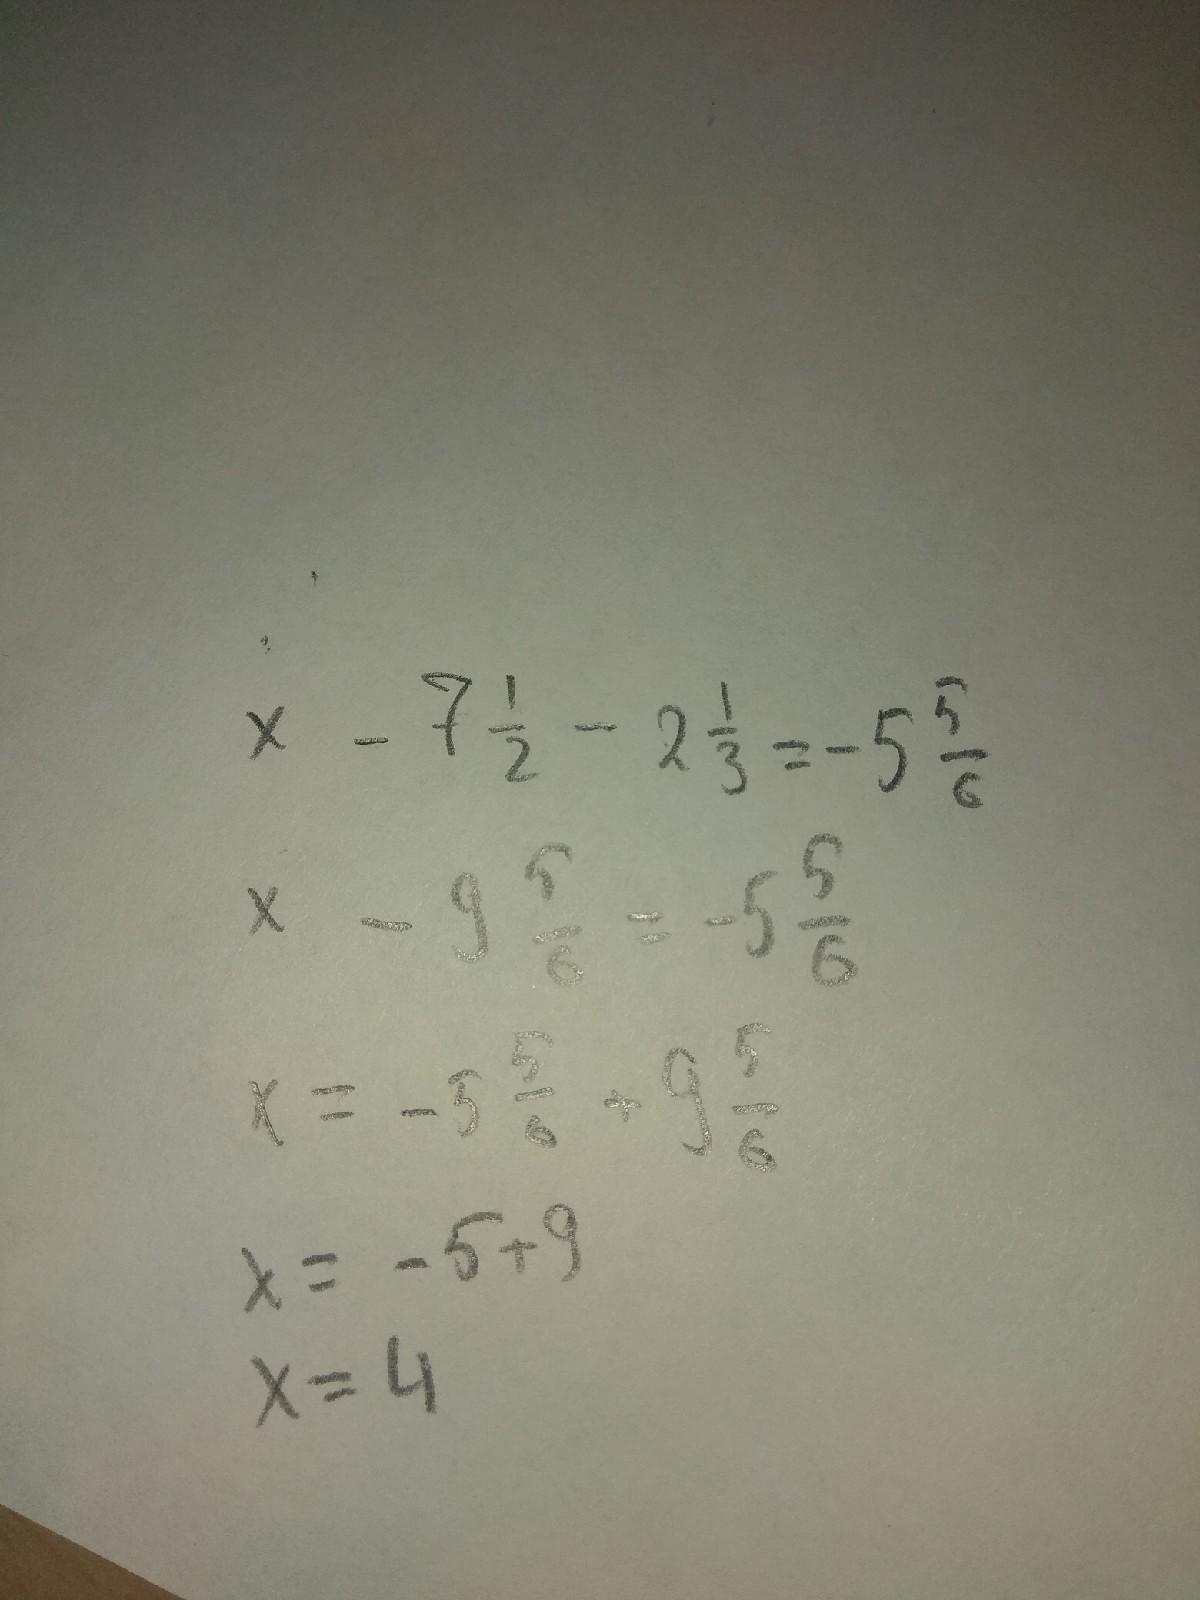 x - 7 1/2 - 2 1/3 = -5 5/6
x - 9 5/6 = -5 5/6
x = -5 5/6 + 9 5/6
x = -5+9
x = 4